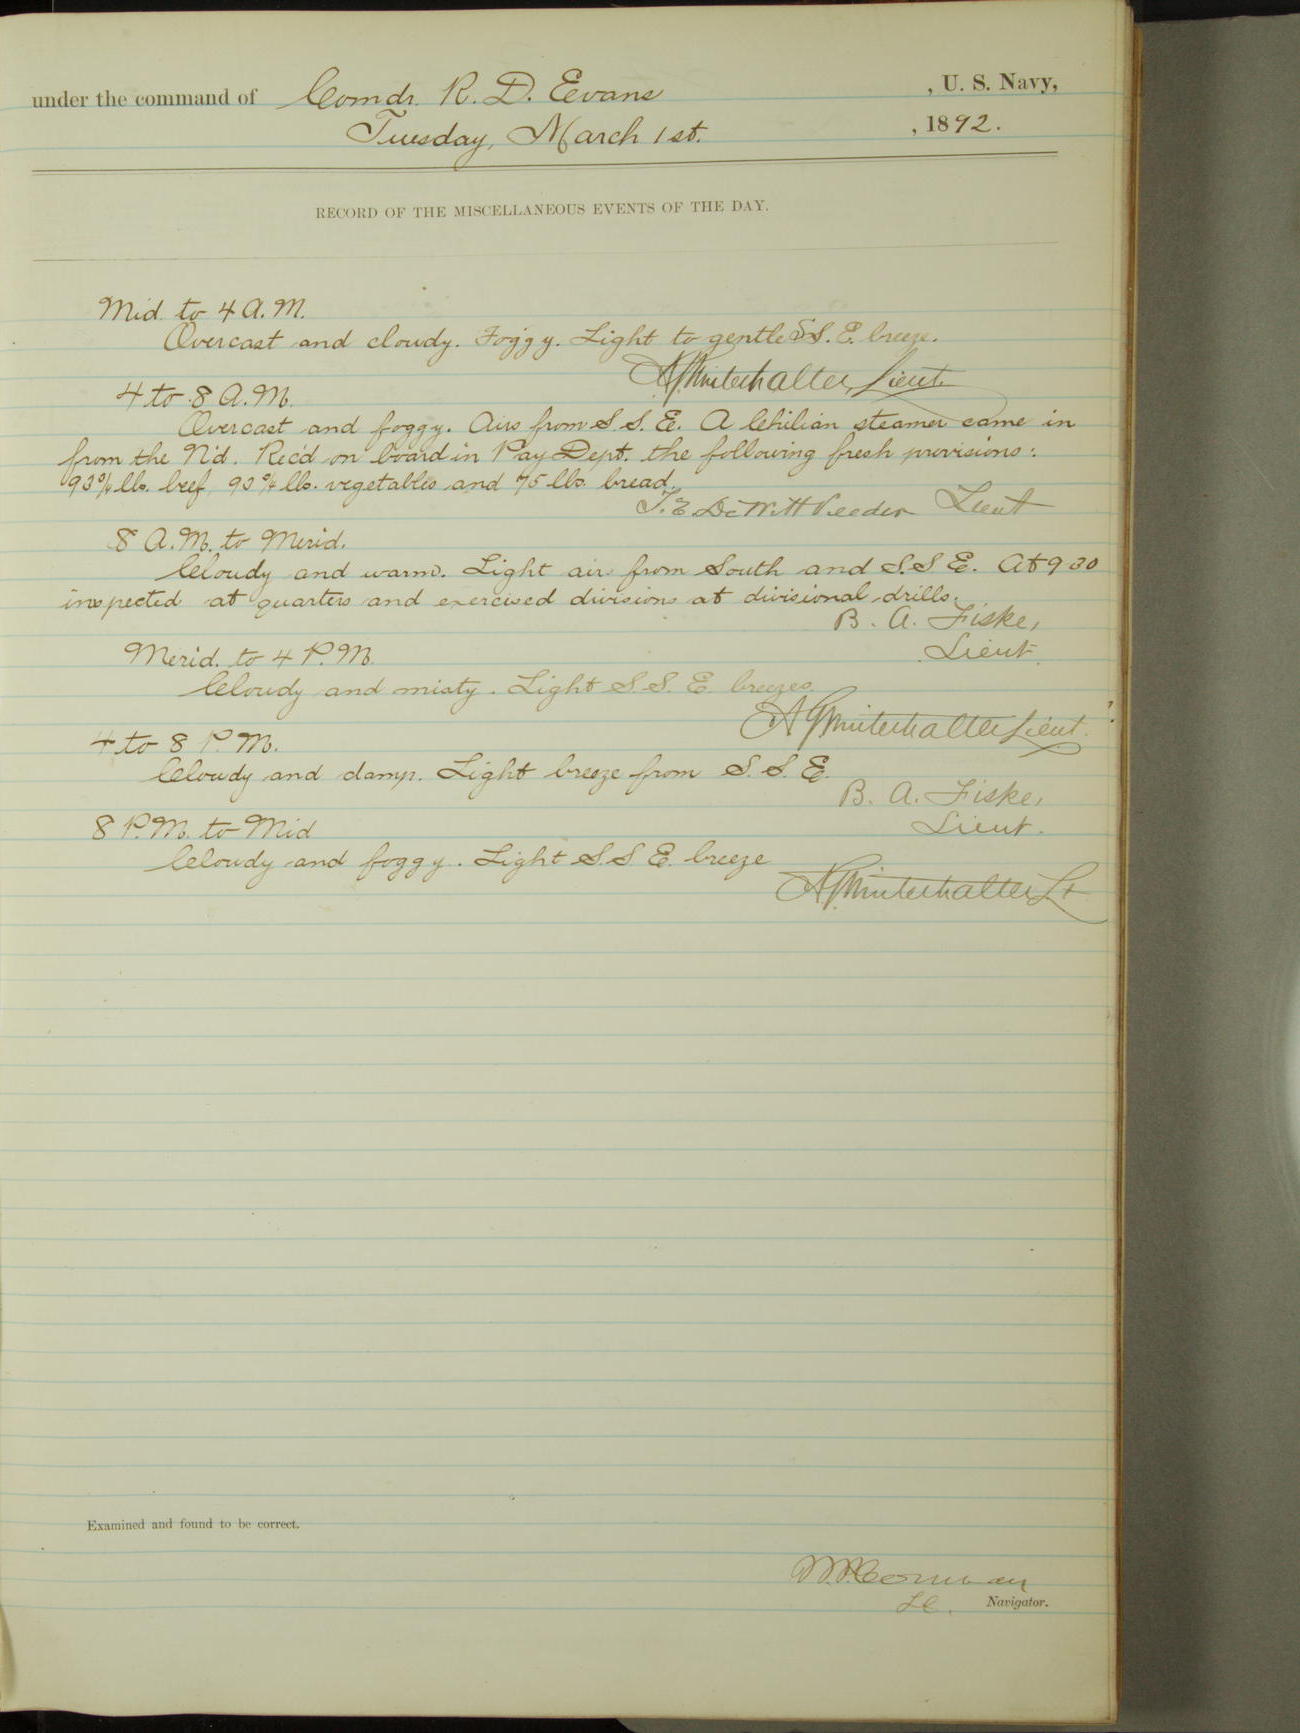 under the command of Comdr. R. D. Evans , U. S. Navy,
Tuesday, March 1st. , 1892.
RECORD OF THE MISCELLANEOUS EVENTS OF THE DAY.
Mid. to 4 A.M.
Overcast and cloudy. Foggy. Light to gentle S.S.E. breeze.
A G Winterhalter, Lieut.
4 to 8 A.M.
Overcast and foggy. Airs from S.S.E. A Chilian steamer came in
from the N'd. Rec'd on board in Pay Dept. the following fresh provisions:
lbs. beef, lbs. vegetables and 75 lbs. bread.
T. E. DeWitt Veeder Lieut
8 A.M. to Merid.
Cloudy and warm. Light air from South and S.S.E. At 9 30
inspected at quarters and exercised divisions at divisional drills.
B. A. Fiske,
Lieut.
Merid. to 4 P.M.
Cloudy and misty. Light S.S.E. breezes.
A G Winterhalter Lieut.
4 to 8 P.M.
Cloudy and damp. Light breeze from S.S.E.
B. A. Fiske,
Lieut.
8 P.M. to Mid
Cloudy and foggy. Light S.S.E. breeze
A G Winterhalter Lt
Examined and found to be correct.
Navigator.